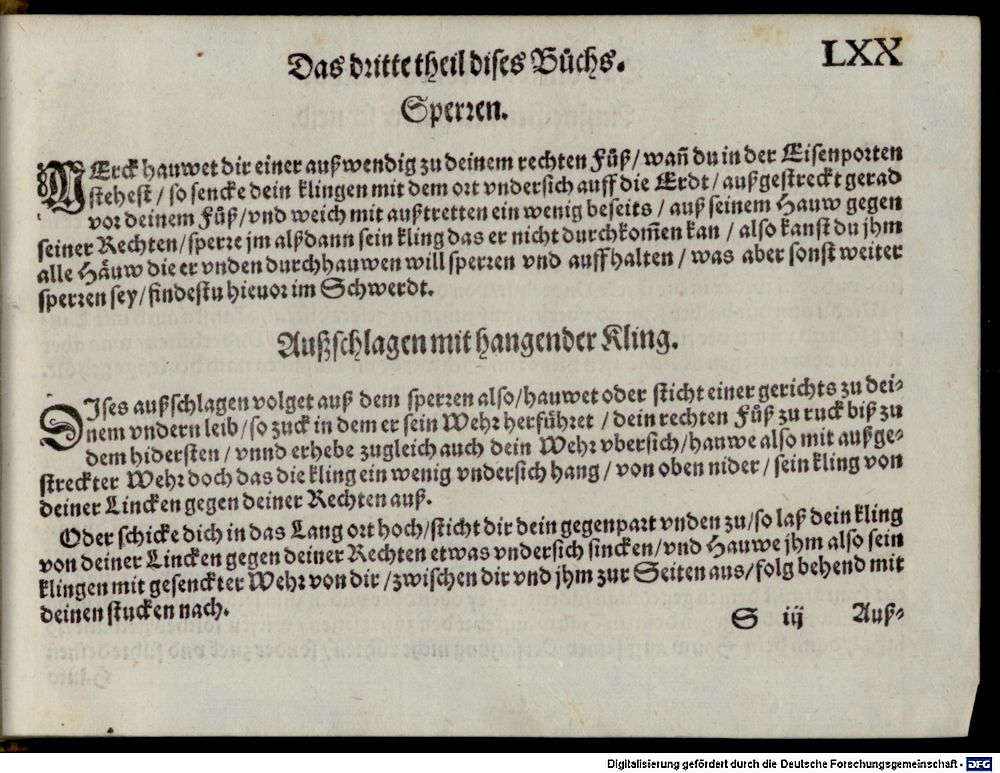 LXX
Das dritte theil dises Bůchs.
Sperren.
MErck hauwet dir einer außwendig zu deinem rechten Fůß / wañ du in der Eisenporten
stehest / so sencke dein klingen mit dem ort vndersich auff die Erdt / außgestreckt gerad
vor deinem Fůß / vnd weich mit außtretten ein wenig beseits / auß seinem Hauw gegen
seiner Rechten / sperre jm alßdann sein kling das er nicht durchkom̃en kan / also kanst du jhm
alle Häuw die er vnden durchhauwen will sperren vnd auffhalten / was aber sonst weiter
sperren sey / findestu hieuor im Schwerdt.
Außschlagen mit hangender Kling.
DJses außschlagen volget auß dem sperren also / hauwet oder sticht einer gerichts zu dei-
nem vndern leib / so zuck in dem er sein Wehr herführet / dein rechten Fůß zu ruck biß zu
dem hidersten / vnnd erhebe zugleich auch dein Wehr vbersich / hauwe also mit außge-
streckter Wehr doch das die kling ein wenig vndersich hang / von oben nider / sein kling von
deiner Lincken gegen deiner Rechten auß.
Oder schicke dich in das Lang ort hoch / sticht dir dein gegenpart vnden zu / so laß dein kling
von deiner Lincken gegen deiner Rechten etwas vndersich sincken / vnd Hauwe jhm also sein
klingen mit gesenckter Wehr von dir / zwischen dir vnd jhm zur Seiten aus / folg behend mit
deinen stucken nach.
S iij Auß-
Digitalisierung gefördert durch die Deutsche Forschungsgemeinschaft - DFG